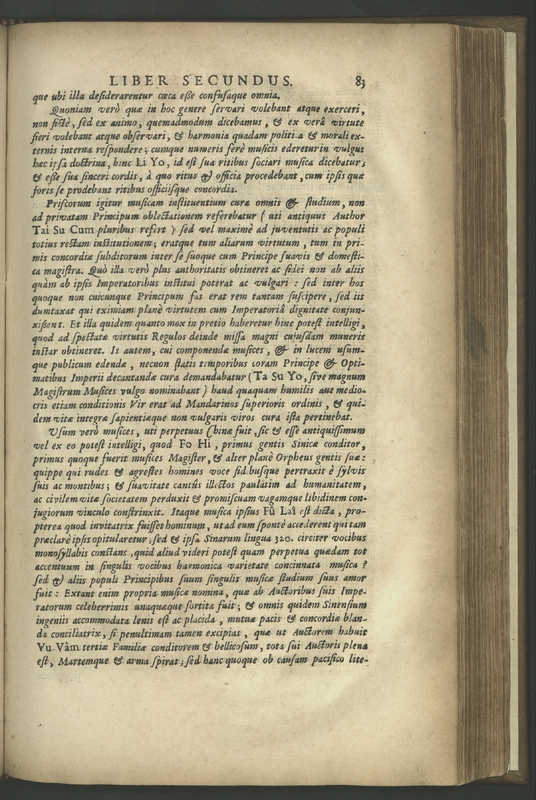 LIBER SECUNDUS. 83
que ubi illa desiderarentur cœca esse confusaque omnia.
Quoniam verò quæ in hoc genere servari volebant atque exerceri,
non fictè, sed ex animo, quemadmodum dicebamus, & ex verâ virtute
fieri volebant atque observari, & harmonia quadam politica & morali ex-
ternis interna respondere; cumque numeris ferè musicis ederetur in vulgus
hæc ipsa doctrina, hinc Li Yo, id est sua ritibus sociari musica dicebatur;
& esse sua sinceri cordis, à quo ritus & officia procedebant, cum ipsis quæ
foris se prodebant ritibus officiisque concordia.
Priscorum igitur musicam instituentium cura omnis & studium, non
ad privatam Principum oblectationem referebatur (uti antiquus Author
Tai Su Cum pluribus refert) sed vel maximè ad juventutis ac populi
totius rectam institutionem; eratque tum aliarum virtutum, tum in pri-
mis concordiæ subditorum inter se suoque cum Principe suavis & domesti-
ca magistra. Quò illa verò plus authoritatis obtineret ac fidei non ab aliis
quàm ab ipsis Imperatoribus institui poterat ac vulgari: sed inter hos
quoque non cuicunque Principum fas erat rem tantam suscipere, sed iis
dumtaxat qui eximiam planè virtutem cum Imperatoriâ dignitate conjun-
xissent. Et illa quidem quanto mox in pretio haberetur hinc potest intelligi,
quod ad spectatæ virtutis Regulos deinde missa magni cujusdam muneris
instar obtineret. Is autem, cui componendæ musices, & in lucem usum-
que publicum edendæ, necnon statis temporibus coram Principe & Opti-
matibus Imperii decantandæ cura demandabatur (Ta Su Yo, sive magnum
Magistrum Musices vulgo nominabant) haud quaquam humilis aut medio-
cris etiam conditionis Vir erat ad Mandarinos superioris ordinis, & qui-
dem vitæ integræ sapientiæque non vulgaris viros cura ista pertinebat.
Usum verò musices, uti perpetuus Chinæ fuit, sic & esse antiquissimum
vel ex eo potest intelligi, quod Fo Hi, primus gentis Sinicæ conditor,
primus quoque fuerit musices Magister, & alter planè Orpheus gentis suæ:
quippe qui rudes & agrestes homines voce fidibusque pertraxit è sylvis
suis ac montibus; & suavitate cantûs illectos paulatim ad humanitatem,
ac civilem vitæ societatem perduxit & promiscuam vagamque libidinem con-
jugiorum vinculo constrinxit. Itaque musica ipsius Fû Lai est dicta, pro-
pterea quod invitatrix fuisset hominum, ut ad eum sponte accederent qui tam
præclarè ipsis opitularetur; sed & ipsa Sinarum lingua 320. circiter vocibus
monosyllabis constans, quid aliud videri potest quam perpetua quædam tot
accentuum in singulis vocibus harmonica varietate concinnata musica?
sed & aliis populi Principibus suum singulis musicæ studium suus amor
fuit: Extant enim propria musicæ nomina, quæ ab Auctoribus suis Impe-
ratorum celeberrimis unaquæque sortita fuit; & omnis quidem Sinensium
ingeniis accommodata lenis est ac placida, mutuæ pacis & concordiæ blan-
da conciliatrix, si penultimam tamen excipias, quæ ut Auctorem habuit
Vu Vâm tertiæ Familiæ conditorem & bellicosum, tota sui Auctoris plena
est, Martemque & arma spirat; sed hanc quoque ob causam pacifico lite-